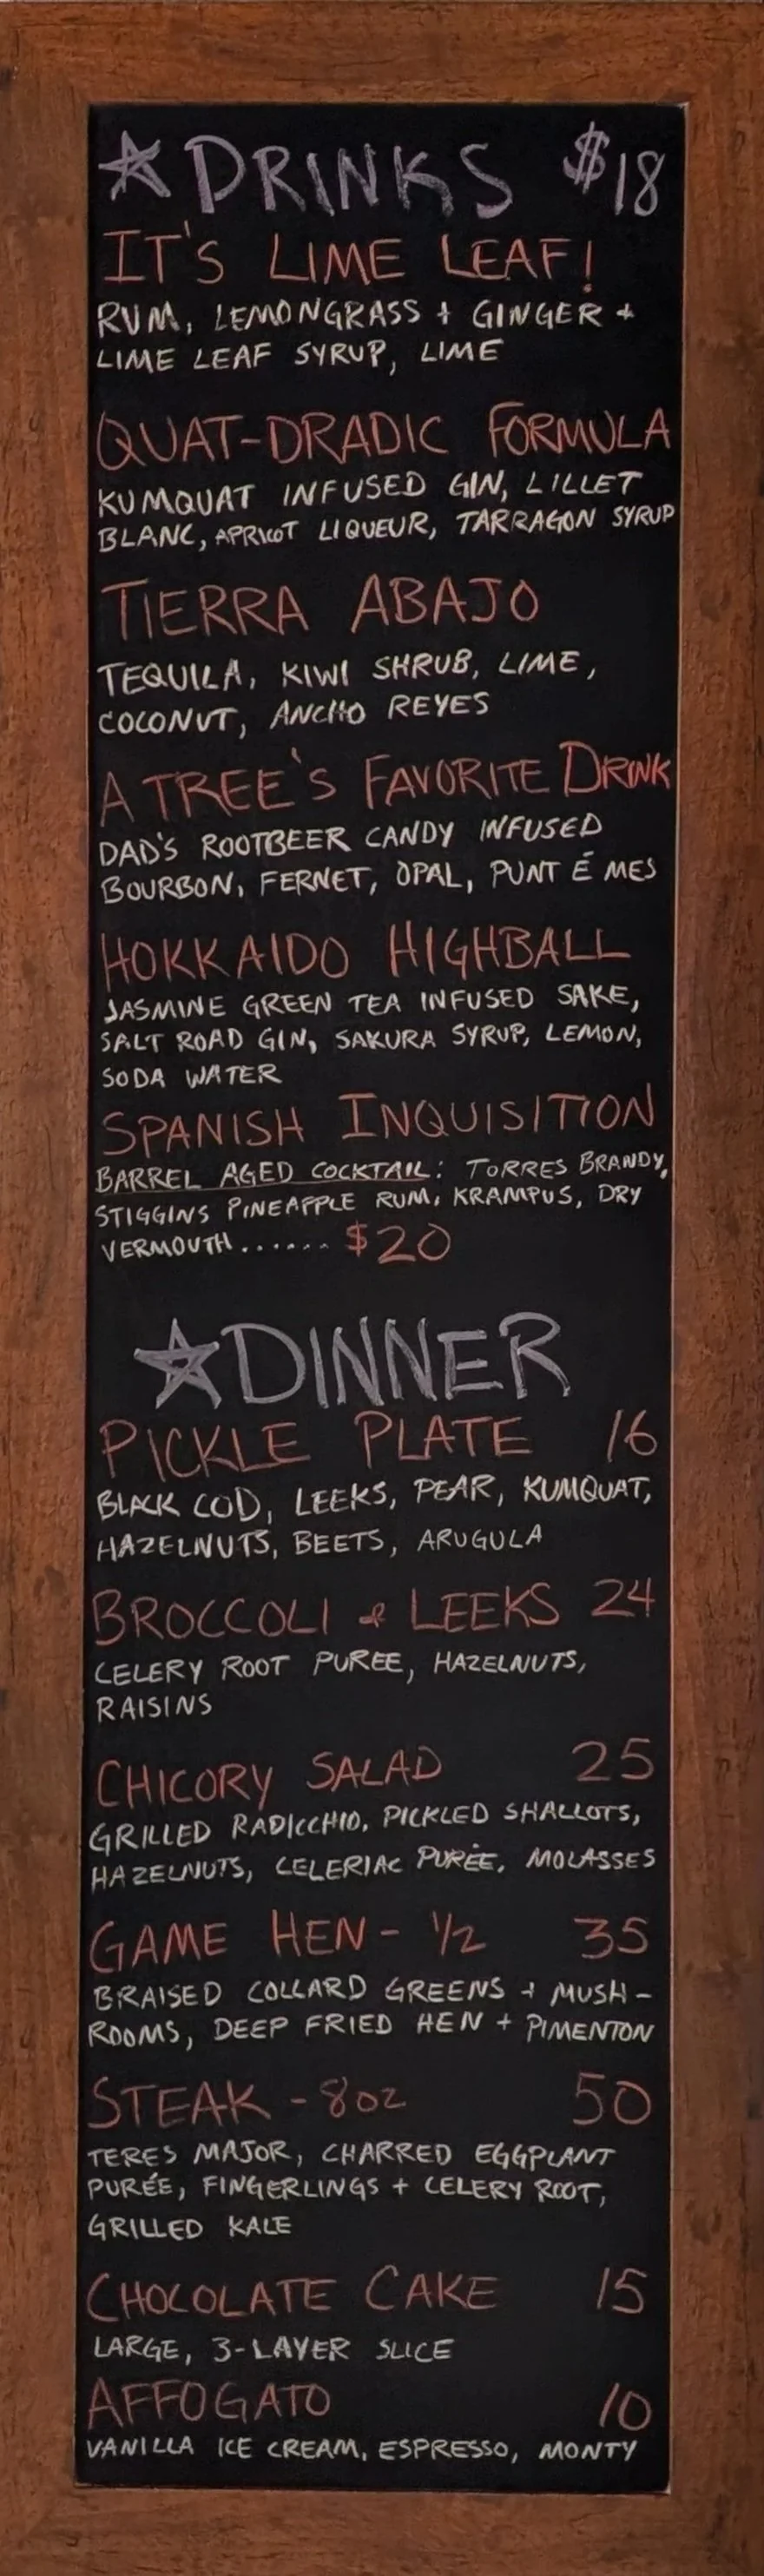 ★DRINKS $18
IT'S LIME LEAF!
RUM, LEMONGRASS + GINGER +
LIME LEAF SYRUP, LIME
QUAT-DRADIC FORMULA
KUMQUAT INFUSED GIN, LILLET
BLANC, APRICOT LIQUEUR, TARRAGON SYRUP
TIERRA ABAJO
TEQUILA, KIWI SHRUB, LIME,
COCONUT, ANCHO REYES
A TREE'S FAVORITE DRINK
DAD'S ROOTBEER CANDY INFUSED
BOURBON, FERNET, OPAL, PUNT É MES
HOKKAIDO HIGHBALL
JASMINE GREEN TEA INFUSED SAKE,
SALT ROAD GIN, SAKURA SYRUP, LEMON,
SODA WATER
SPANISH INQUISITION
BARREL AGED COCKTAIL: TORRES BRANDY,
STIGGINS PINEAPPLE RUM, KRAMPUS, DRY
VERMOUTH...... $20
★DINNER
PICKLE PLATE 16
BLACK COD, LEEKS, PEAR, KUMQUAT,
HAZELNUTS, BEETS, ARUGULA
BROCCOLI & LEEKS 24
CELERY ROOT PUREE, HAZELNUTS,
RAISINS
CHICORY SALAD 25
GRILLED RADICCHIO, PICKLED SHALLOTS,
HAZELNUTS, CELERIAC PURÉE, MOLASSES
GAME HEN - 1/2 35
BRAISED COLLARD GREENS + MUSH-
ROOMS, DEEP FRIED HEN + PIMENTON
STEAK - 8oz 50
TERES MAJOR, CHARRED EGGPLANT
PURÉE, FINGERLINGS + CELERY ROOT,
GRILLED KALE
CHOCOLATE CAKE 15
LARGE, 3-LAYER SLICE
AFFOGATO 10
VANILLA ICE CREAM, ESPRESSO, MONTY